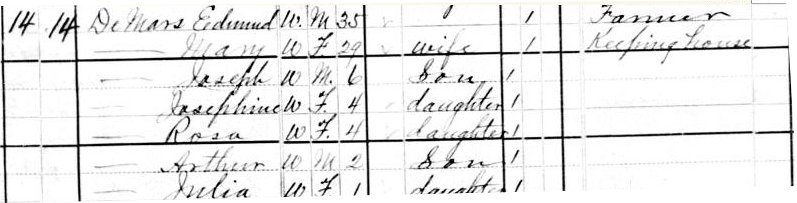 14 14 DeMars Edmund W. M 35 1 Farmer
— Mary W F 29 wife 1 Keeping house
— Joseph W M. 6 Son 1
— Josephine W F. 4 daughter 1
— Rosa W F. 4 daughter 1
— Arthur W M 2 Son 1
— Julia W F 1 daughter 1